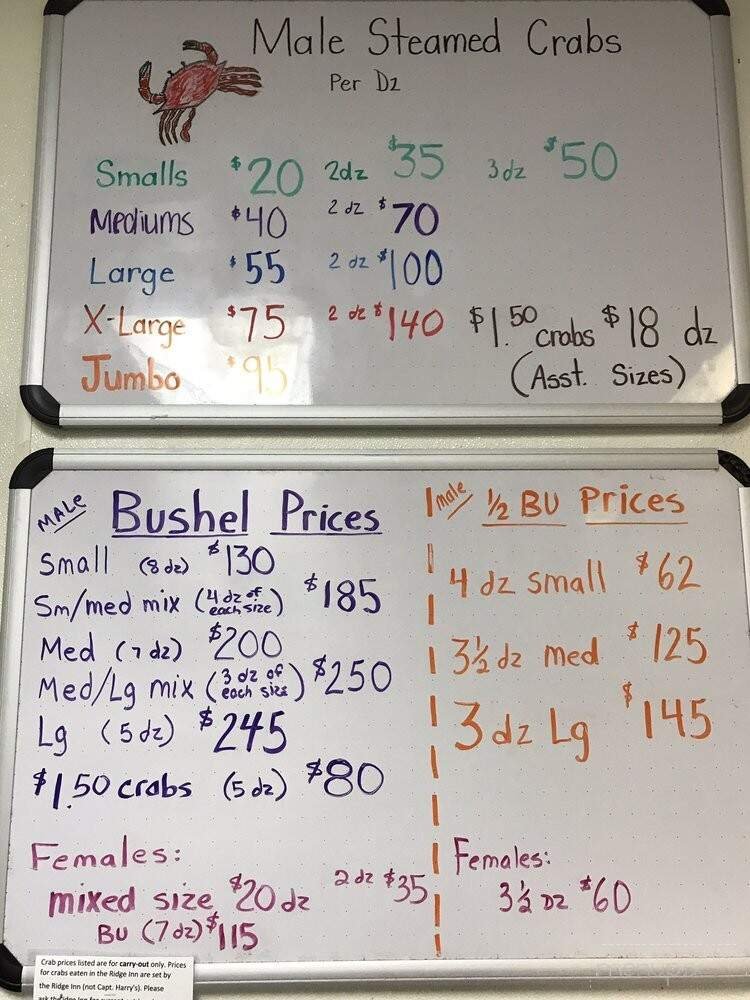 Male Steamed Crabs
Per Dz
Smalls $20 2dz $35 3dz $50
Mediums $40 2 dz $70
Large $55 2 dz $100
X-Large $75 2 dz $140 $1.50 crabs $18 dz
Jumbo $95 (Asst. Sizes)
MALE Bushel Prices
Small (8 dz) $130
Sm/med mix (4 dz of each size) $185
Med (7 dz) $200
Med/Lg mix (3 dz of each size) $250
Lg (5 dz) $245
$1.50 crabs (5 dz) $80
Females:
mixed size $20 dz 2 dz $35
BU (7 dz) $115
male 1/2 BU Prices
4 dz small $62
3 1/2 dz med $125
3 dz Lg $145
Females:
3 1/2 DZ $60
Crab prices listed are for carry-out only. Prices
for crabs eaten in the Ridge Inn are set by
the Ridge Inn (not Capt. Harry's). Please